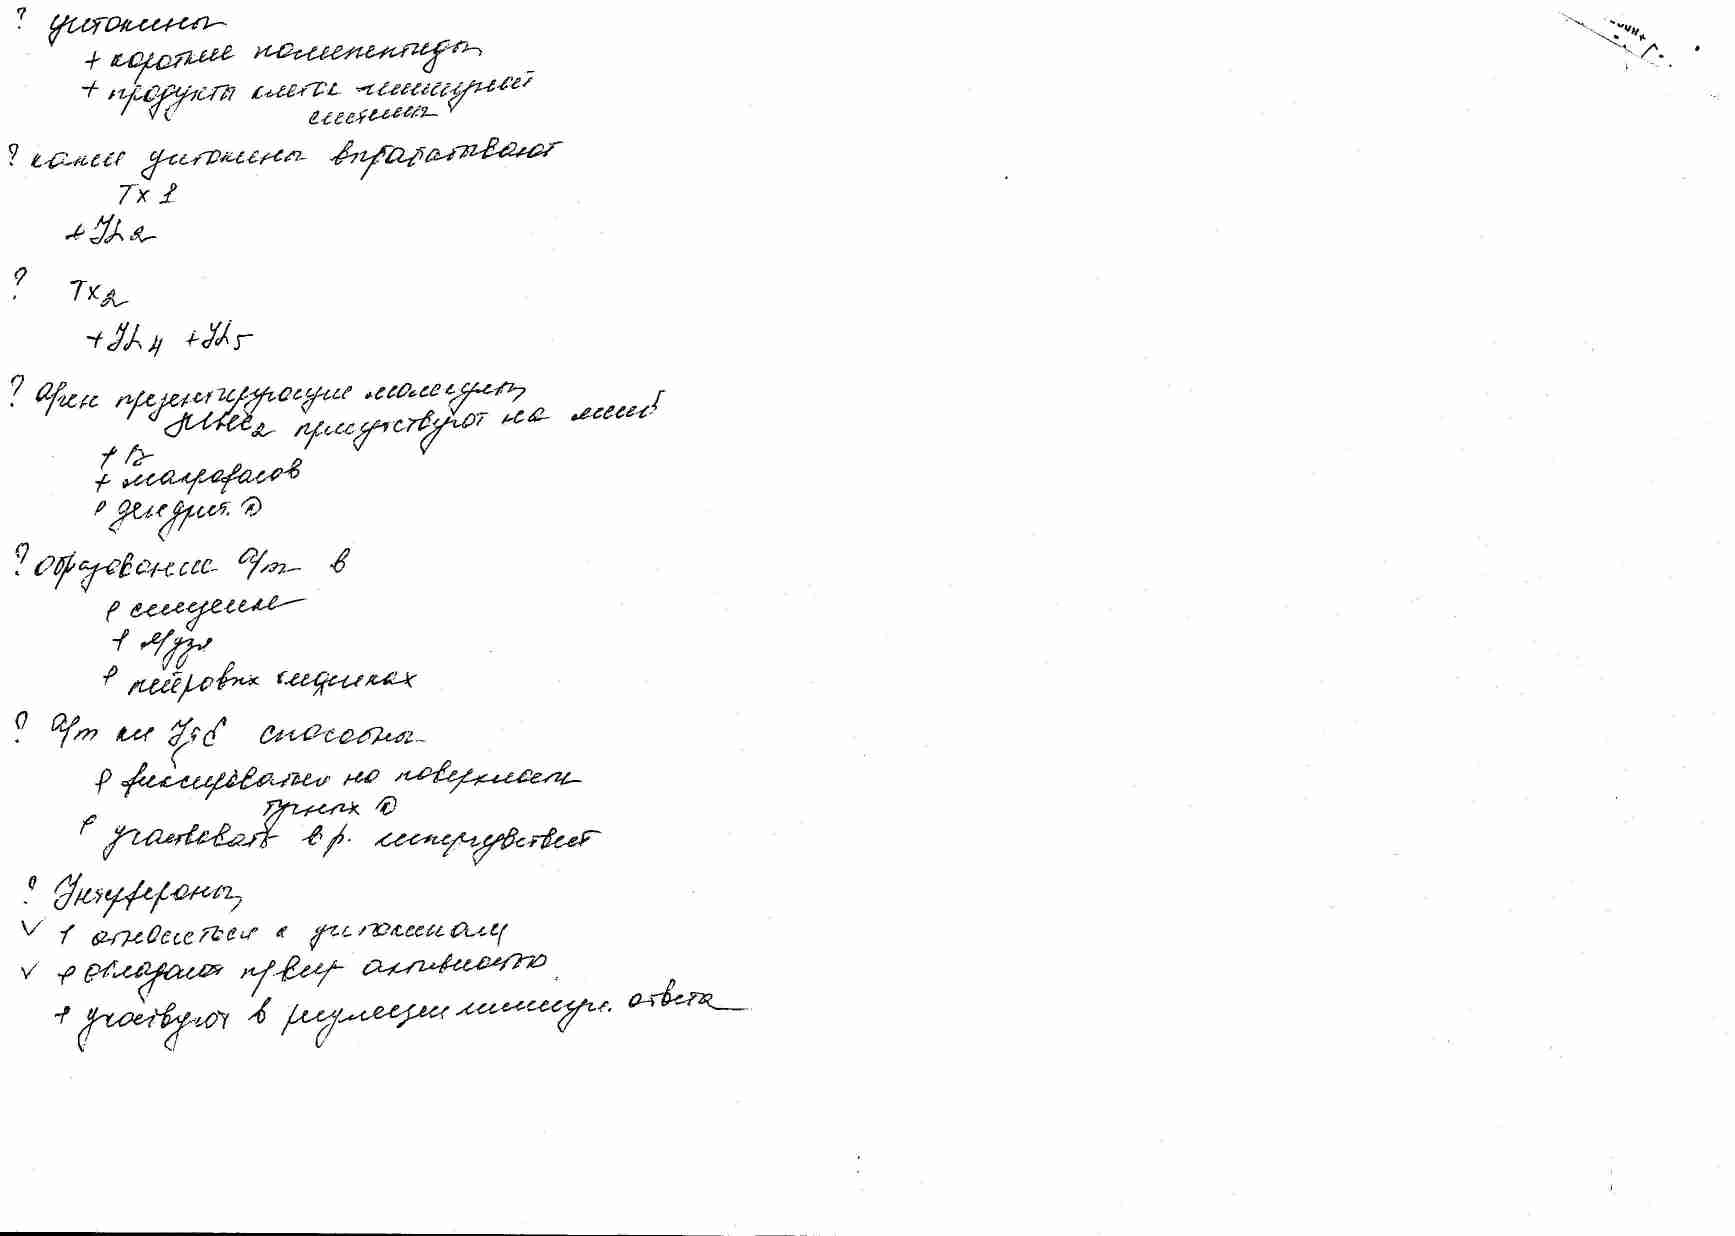 ? цитокины
+ короткие полипептиды
+ продукты клеток иммунной
системы
? какие цитокины вырабатывают
Тх 1
+ JL 2
? Тх2
+ JL 4 + JL 5
? А/ген презентирующие молекулы
МНС2 присутствуют на
+ В
+ макрофагов
+ дендрит.
? образование а/т в
+ селезенке
+ л/узл
+ пейеровых бляшках
? А/т кл JgE способны
+ фиксироваться на поверхности
тучных
+ участвовать в р. гиперчувствит
? Интерфероны
+ относиться к цитокинам
+ обладают п/вир активностью
+ участвуют в регуляции иммун. ответа